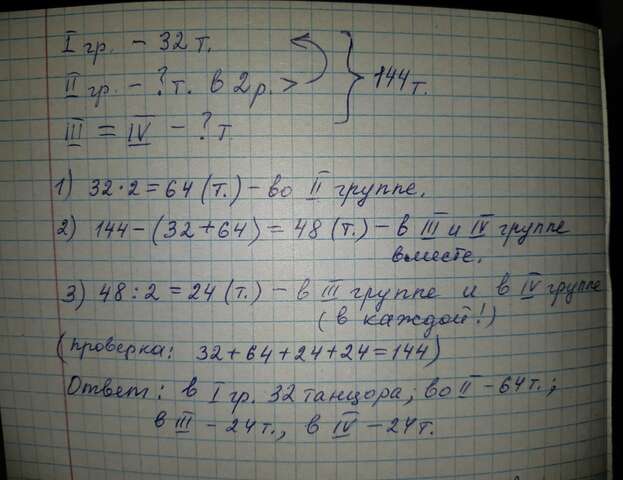 I гр. - 32 т.
II гр. - ? т. в 2 р. >
III = IV - ? т.
} 144 т.
1) 32 · 2 = 64 (т.) - во II группе.
2) 144 - (32 + 64) = 48 (т.) - в III и IV группе
вместе.
3) 48 : 2 = 24 (т.) - в III группе и в IV группе
(в каждой!)
(проверка: 32 + 64 + 24 + 24 = 144)
Ответ: в I гр. 32 танцора; во II - 64 т.;
в III - 24 т., в IV - 24 т.